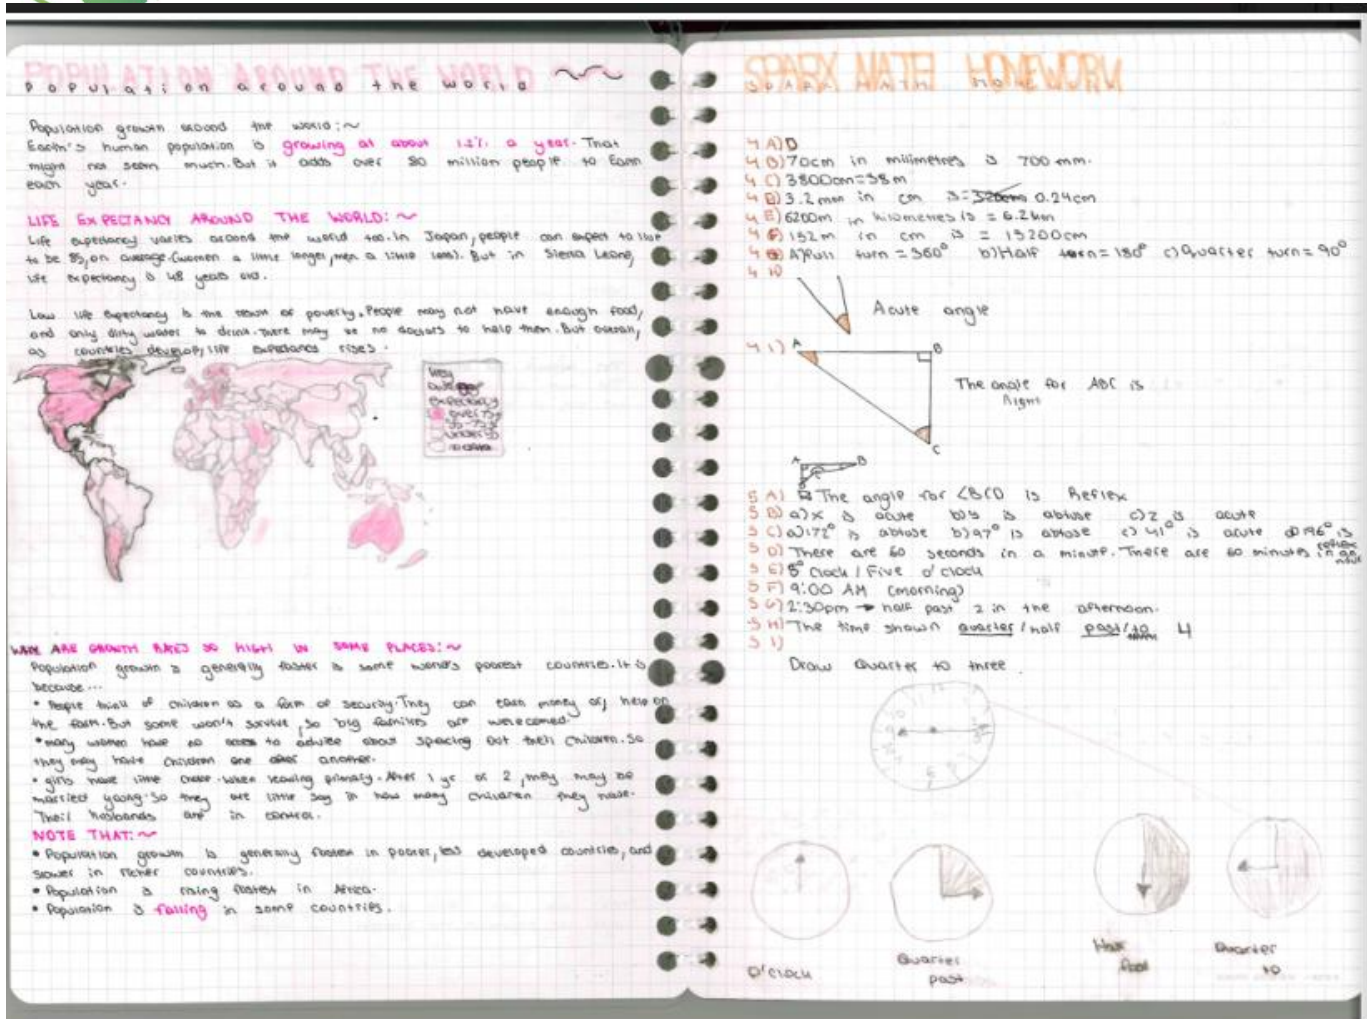 POPULATION AROUND THE WORLD
Population around the world
Population growth around the world:~
Earth's human population is growing at about 1.2% a year. That
might not seem much. But it adds over 80 million people to Earth
each year.
LIFE EXPECTANCY AROUND THE WORLD:~
Life expectancy varies around the world too. In Japan, people can expect to live
to be 83, on average. (women a little longer, men a little less). But in Sierra Leone,
life expectancy is 48 years old.
Low life expectancy is the result of poverty. People may not have enough food,
and only dirty water to drink. There may be no doctors to help them. But overall,
as countries develop, life expectancy rises.
Key
average
expectancy
over 75
55-75
under 55
no data
WHY ARE GROWTH RATES SO HIGH IN SOME PLACES:~
Population growth is generally faster is some world's poorest countries. It is
because...
• People think of children as a form of security. They can earn money or, help on
the farm. But some won't survive, so big families are welcomed.
• many women have no access to advise about spacing out their children. So
they may have children one after another.
• girls have little choice. When leaving primary. After 1 yr or 2, they may be
married young. So they are little say in how many children they have.
Their husbands are in control.
NOTE THAT:~
• Population growth is generally fastest in poorer, less developed countries, and
slower in richer countries.
• Population is rising fastest in Africa.
• Population is falling in some countries.
SPARX MATH HOMEWORK
SPARX MATH HOME
4 A) D
4 B) 70cm in milimetres is 700 mm.
4 C) 3800cm=38m
4 D) 3.2 mm in cm is= 0.24cm
4 E) 6200m in kilometres is = 6.2km
4 F) 152m in cm is = 15200cm
4 G) A) Full turn = 360° b) Half turn = 180° c) Quarter turn = 90°
4 H)
Acute angle
4 I)
A
B
The angle for ABC is
Right
C
A
B
5 A) The angle for ∠BCD is Reflex
5 B) a) x is acute b) y is obtuse c) z is acute
5 C) a) 172° is abtose b) 97° is abtose c) 41° is acute d) 196° is
reflex
5 D) There are 60 seconds in a minute. There are 60 minutes in an
hour
5 E) 5° clock / Five o'clock
5 F) 9:00 AM (morning)
5 G) 2:30pm → half past 2 in the afternoon.
5 H) The time shown quarter / half past / to 4
5 I)
Draw Quarter to three.
O'clock
Quarter
past
Half
past
Quarter
to